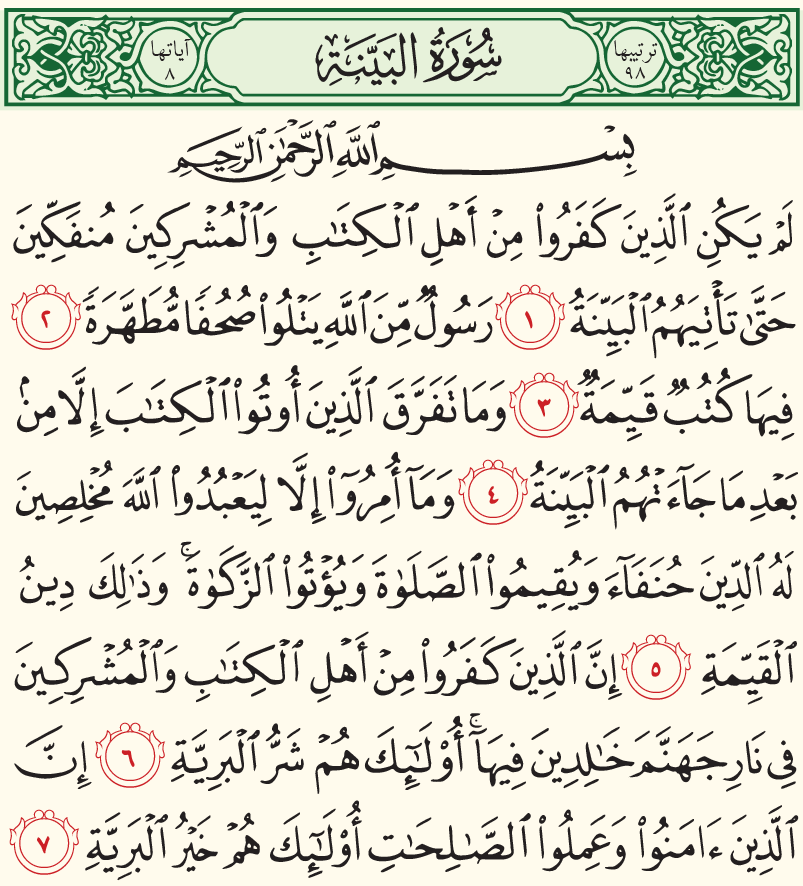 ترتيبها ٩٨ سُورَةُ البَيِّنَةِ آياتها ٨
بِسْمِ ٱللَّهِ ٱلرَّحْمَٰنِ ٱلرَّحِيمِ
لَمْ يَكُنِ ٱلَّذِينَ كَفَرُوا۟ مِنْ أَهْلِ ٱلْكِتَٰبِ وَٱلْمُشْرِكِينَ مُنفَكِّينَ
حَتَّىٰ تَأْتِيَهُمُ ٱلْبَيِّنَةُ ١ رَسُولٌ مِّنَ ٱللَّهِ يَتْلُوا۟ صُحُفًا مُّطَهَّرَةً ٢
فِيهَا كُتُبٌ قَيِّمَةٌ ٣ وَمَا تَفَرَّقَ ٱلَّذِينَ أُوتُوا۟ ٱلْكِتَٰبَ إِلَّا مِنۢ
بَعْدِ مَا جَآءَتْهُمُ ٱلْبَيِّنَةُ ٤ وَمَآ أُمِرُوٓا۟ إِلَّا لِيَعْبُدُوا۟ ٱللَّهَ مُخْلِصِينَ
لَهُ ٱلدِّينَ حُنَفَآءَ وَيُقِيمُوا۟ ٱلصَّلَوٰةَ وَيُؤْتُوا۟ ٱلزَّكَوٰةَ ۚ وَذَٰلِكَ دِينُ
ٱلْقَيِّمَةِ ٥ إِنَّ ٱلَّذِينَ كَفَرُوا۟ مِنْ أَهْلِ ٱلْكِتَٰبِ وَٱلْمُشْرِكِينَ
فِى نَارِ جَهَنَّمَ خَٰلِدِينَ فِيهَآ ۚ أُو۟لَٰٓئِكَ هُمْ شَرُّ ٱلْبَرِيَّةِ ٦ إِنَّ
ٱلَّذِينَ ءَامَنُوا۟ وَعَمِلُوا۟ ٱلصَّٰلِحَٰتِ أُو۟لَٰٓئِكَ هُمْ خَيْرُ ٱلْبَرِيَّةِ ٧